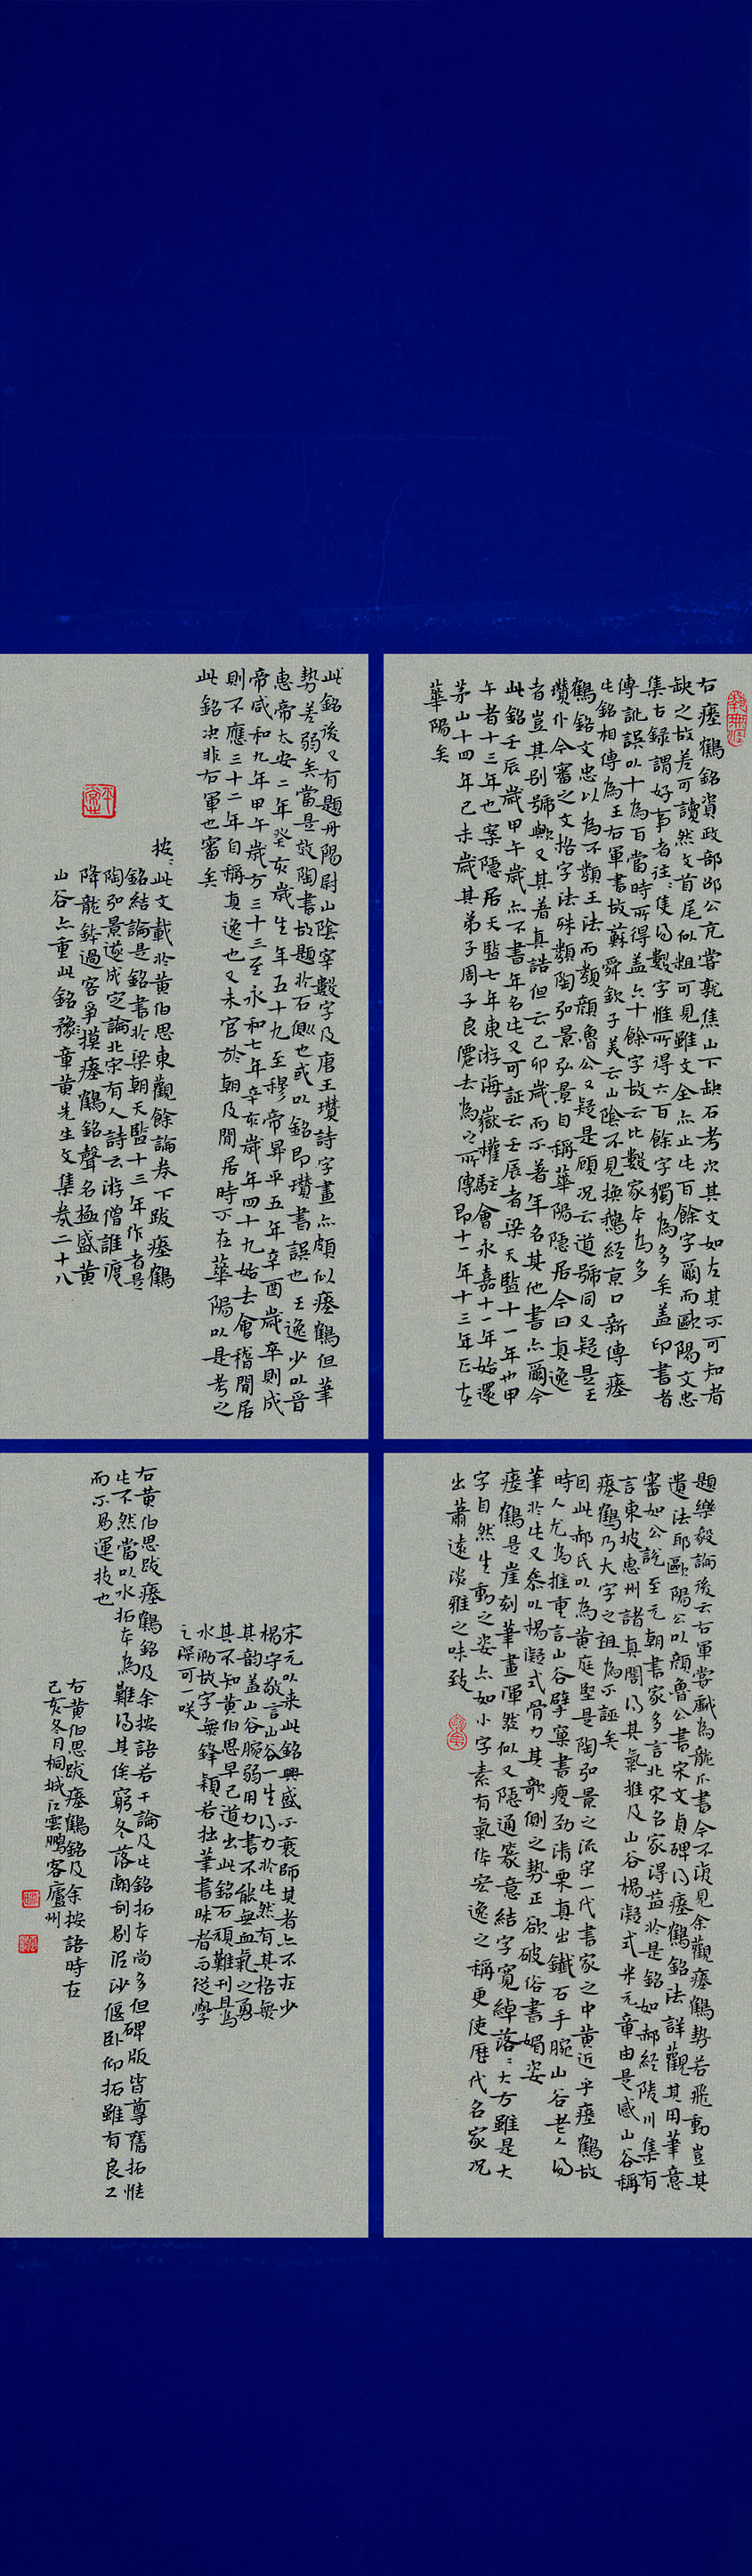 右瘞鶴銘資政部邵公亢嘗就焦山下缺石考次其文如左其不可知者
缺之故差可讀然文首尾似粗可見雖文全亦止此百餘字爾而歐陽文忠
集古錄謂好事者往〻隻得數字惟所得六百餘字獨為多矣蓋印書者
傳訛誤以十為百當時所得蓋六十餘字故云比數家本為多
此銘相傳為王右軍書故蘇舜欽子美云山陰不見換鵝經京口新傳瘞
鶴銘文忠以為不類王法而類顏魯公又疑是顧況云道號同又疑是王
瓚仆今審之文格字法殊類陶弘景弘景自稱華陽隱居今曰真逸
者豈其別號歟又其著真誥但云己卯歲而不著年名其他書亦爾今
此銘壬辰歲甲午歲亦不書年名此又可証云壬辰者梁天監十一年也甲
午者十三年也案隱居天監七年東游海嶽權駐會永嘉十一年始還
茅山十四年己未歲其弟子周子良僊去為之所傳即十一年十三年正在
華陽矣
此銘後又有題丹陽尉山陰宰數字及唐王瓚詩字畫亦頗似瘞鶴但筆
勢差弱矣當是效陶書故題於石側也或以銘即瓚書誤也王逸少以晉
惠帝太安二年癸亥歲生年五十九至穆帝昇平五年辛酉歲卒則成
帝咸和九年甲午歲方三十三至永和七年辛亥歲年四十九始去會稽閒居
則不應三十二年自稱真逸也又未官於朝及閒居時不在華陽以是考之
此銘決非右軍也審矣
按〻此文載於黃伯思東觀餘論卷下跋瘞鶴
銘結論是銘書於梁朝天監十三年作者是
陶弘景遂成定論北宋有人詩云游僧誰渡
降龍鉢過客爭摸瘞鶴銘聲名極盛黃
山谷亦重此銘豫章黃先生文集卷二十八
題樂毅論後云右軍嘗戲為龍爪書今不復見余觀瘞鶴勢若飛動豈其
遺法耶歐陽公以顏魯公書宋文貞碑得瘞鶴銘法詳觀其用筆意
審如公說至元朝書家多言北宋名家得益於是銘如郝經陵川集有
言東坡惠州諸真閣得其氣推及山谷楊凝式米元章由是感山谷稱
瘞鶴乃大字之祖為不誣矣
因此郝氏以為黃庭堅是陶弘景之流宋一代書家之中黃近乎瘞鶴故
時人尤為推重言山谷擘窠書瘦勁清栗真出鐵石手腕山谷老人得
筆於此又參以楊凝式骨力其欹側之勢正欲破俗書媚姿
瘞鶴是崖刻筆畫渾發似又隱通篆意結字寬綽落〻大方雖是大
字自然生動之姿亦如小字素有氣體宏逸之稱更使歷代名家況
出蕭遠淡雅之味致
宋元以來此銘興盛不衰師其者亦不在少
楊守敬言山谷一生得力於此然有其格無
其韵蓋山谷腕弱用力書不能無血氣之勇
其不知黃伯思早已道出此銘石頑難刊且為
水泐故字無鋒穎若拙筆書昧者而從學
之深可一咲
右黃伯思跋瘞鶴銘及余按語若干論及此銘拓本尚多但碑版皆尊舊拓惟
此不然當以水拓本為難得其俟窮冬落潮刮剔泥沙偃臥仰拓雖有良工
而不易運技也
右黃伯思跋瘞鶴銘及余按語時在
己亥冬月桐城江雲鵬客廬州